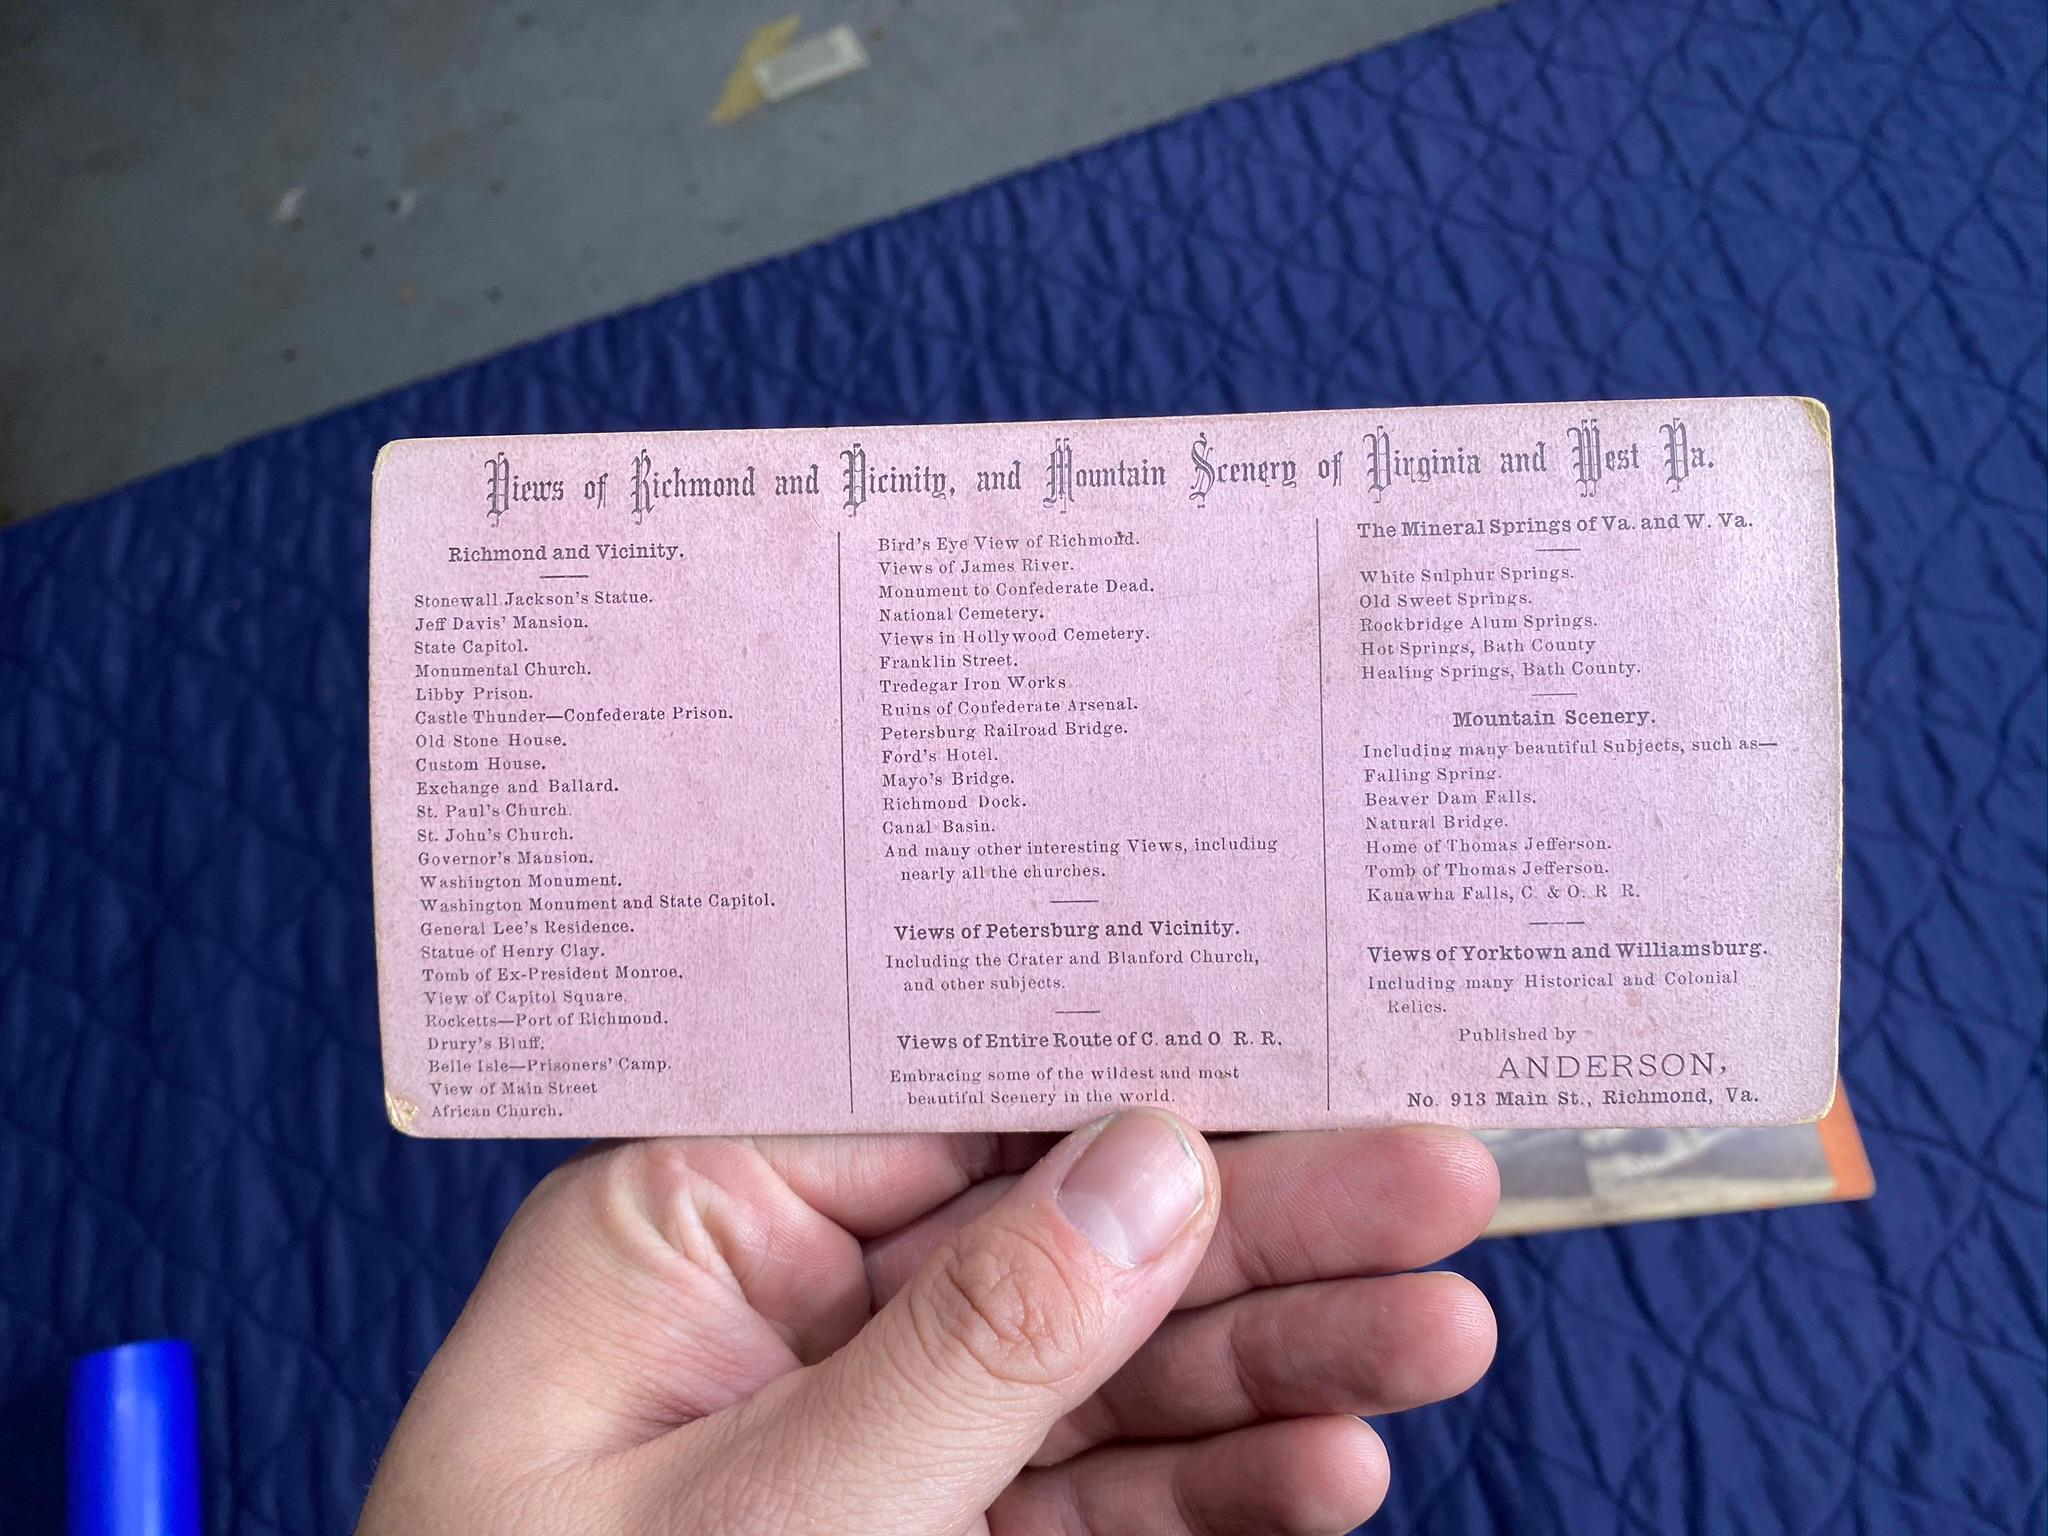 Views of Richmond and Vicinity, and Mountain Scenery of Virginia and West Va.
Richmond and Vicinity.
Stonewall Jackson's Statue.
Jeff Davis' Mansion.
State Capitol.
Monumental Church.
Libby Prison.
Castle Thunder—Confederate Prison.
Old Stone House.
Custom House.
Exchange and Ballard.
St. Paul's Church.
St. John's Church.
Governor's Mansion.
Washington Monument.
Washington Monument and State Capitol.
General Lee's Residence.
Statue of Henry Clay.
Tomb of Ex-President Monroe.
View of Capitol Square.
Rocketts—Port of Richmond.
Drury's Bluff.
Belle Isle—Prisoners' Camp.
View of Main Street
African Church.
Bird's Eye View of Richmond.
Views of James River.
Monument to Confederate Dead.
National Cemetery.
Views in Hollywood Cemetery.
Franklin Street.
Tredegar Iron Works
Ruins of Confederate Arsenal.
Petersburg Railroad Bridge.
Ford's Hotel.
Mayo's Bridge.
Richmond Dock.
Canal Basin.
And many other interesting Views, including
nearly all the churches.
Views of Petersburg and Vicinity.
Including the Crater and Blanford Church,
and other subjects.
Views of Entire Route of C. and O R. R.
Embracing some of the wildest and most
beautiful Scenery in the world.
The Mineral Springs of Va. and W. Va.
White Sulphur Springs.
Old Sweet Springs.
Rockbridge Alum Springs.
Hot Springs, Bath County
Healing Springs, Bath County.
Mountain Scenery.
Including many beautiful Subjects, such as—
Falling Spring.
Beaver Dam Falls.
Natural Bridge.
Home of Thomas Jefferson.
Tomb of Thomas Jefferson.
Kanawha Falls, C. & O. R R.
Views of Yorktown and Williamsburg.
Including many Historical and Colonial
Relics.
Published by
ANDERSON,
No. 913 Main St., Richmond, Va.